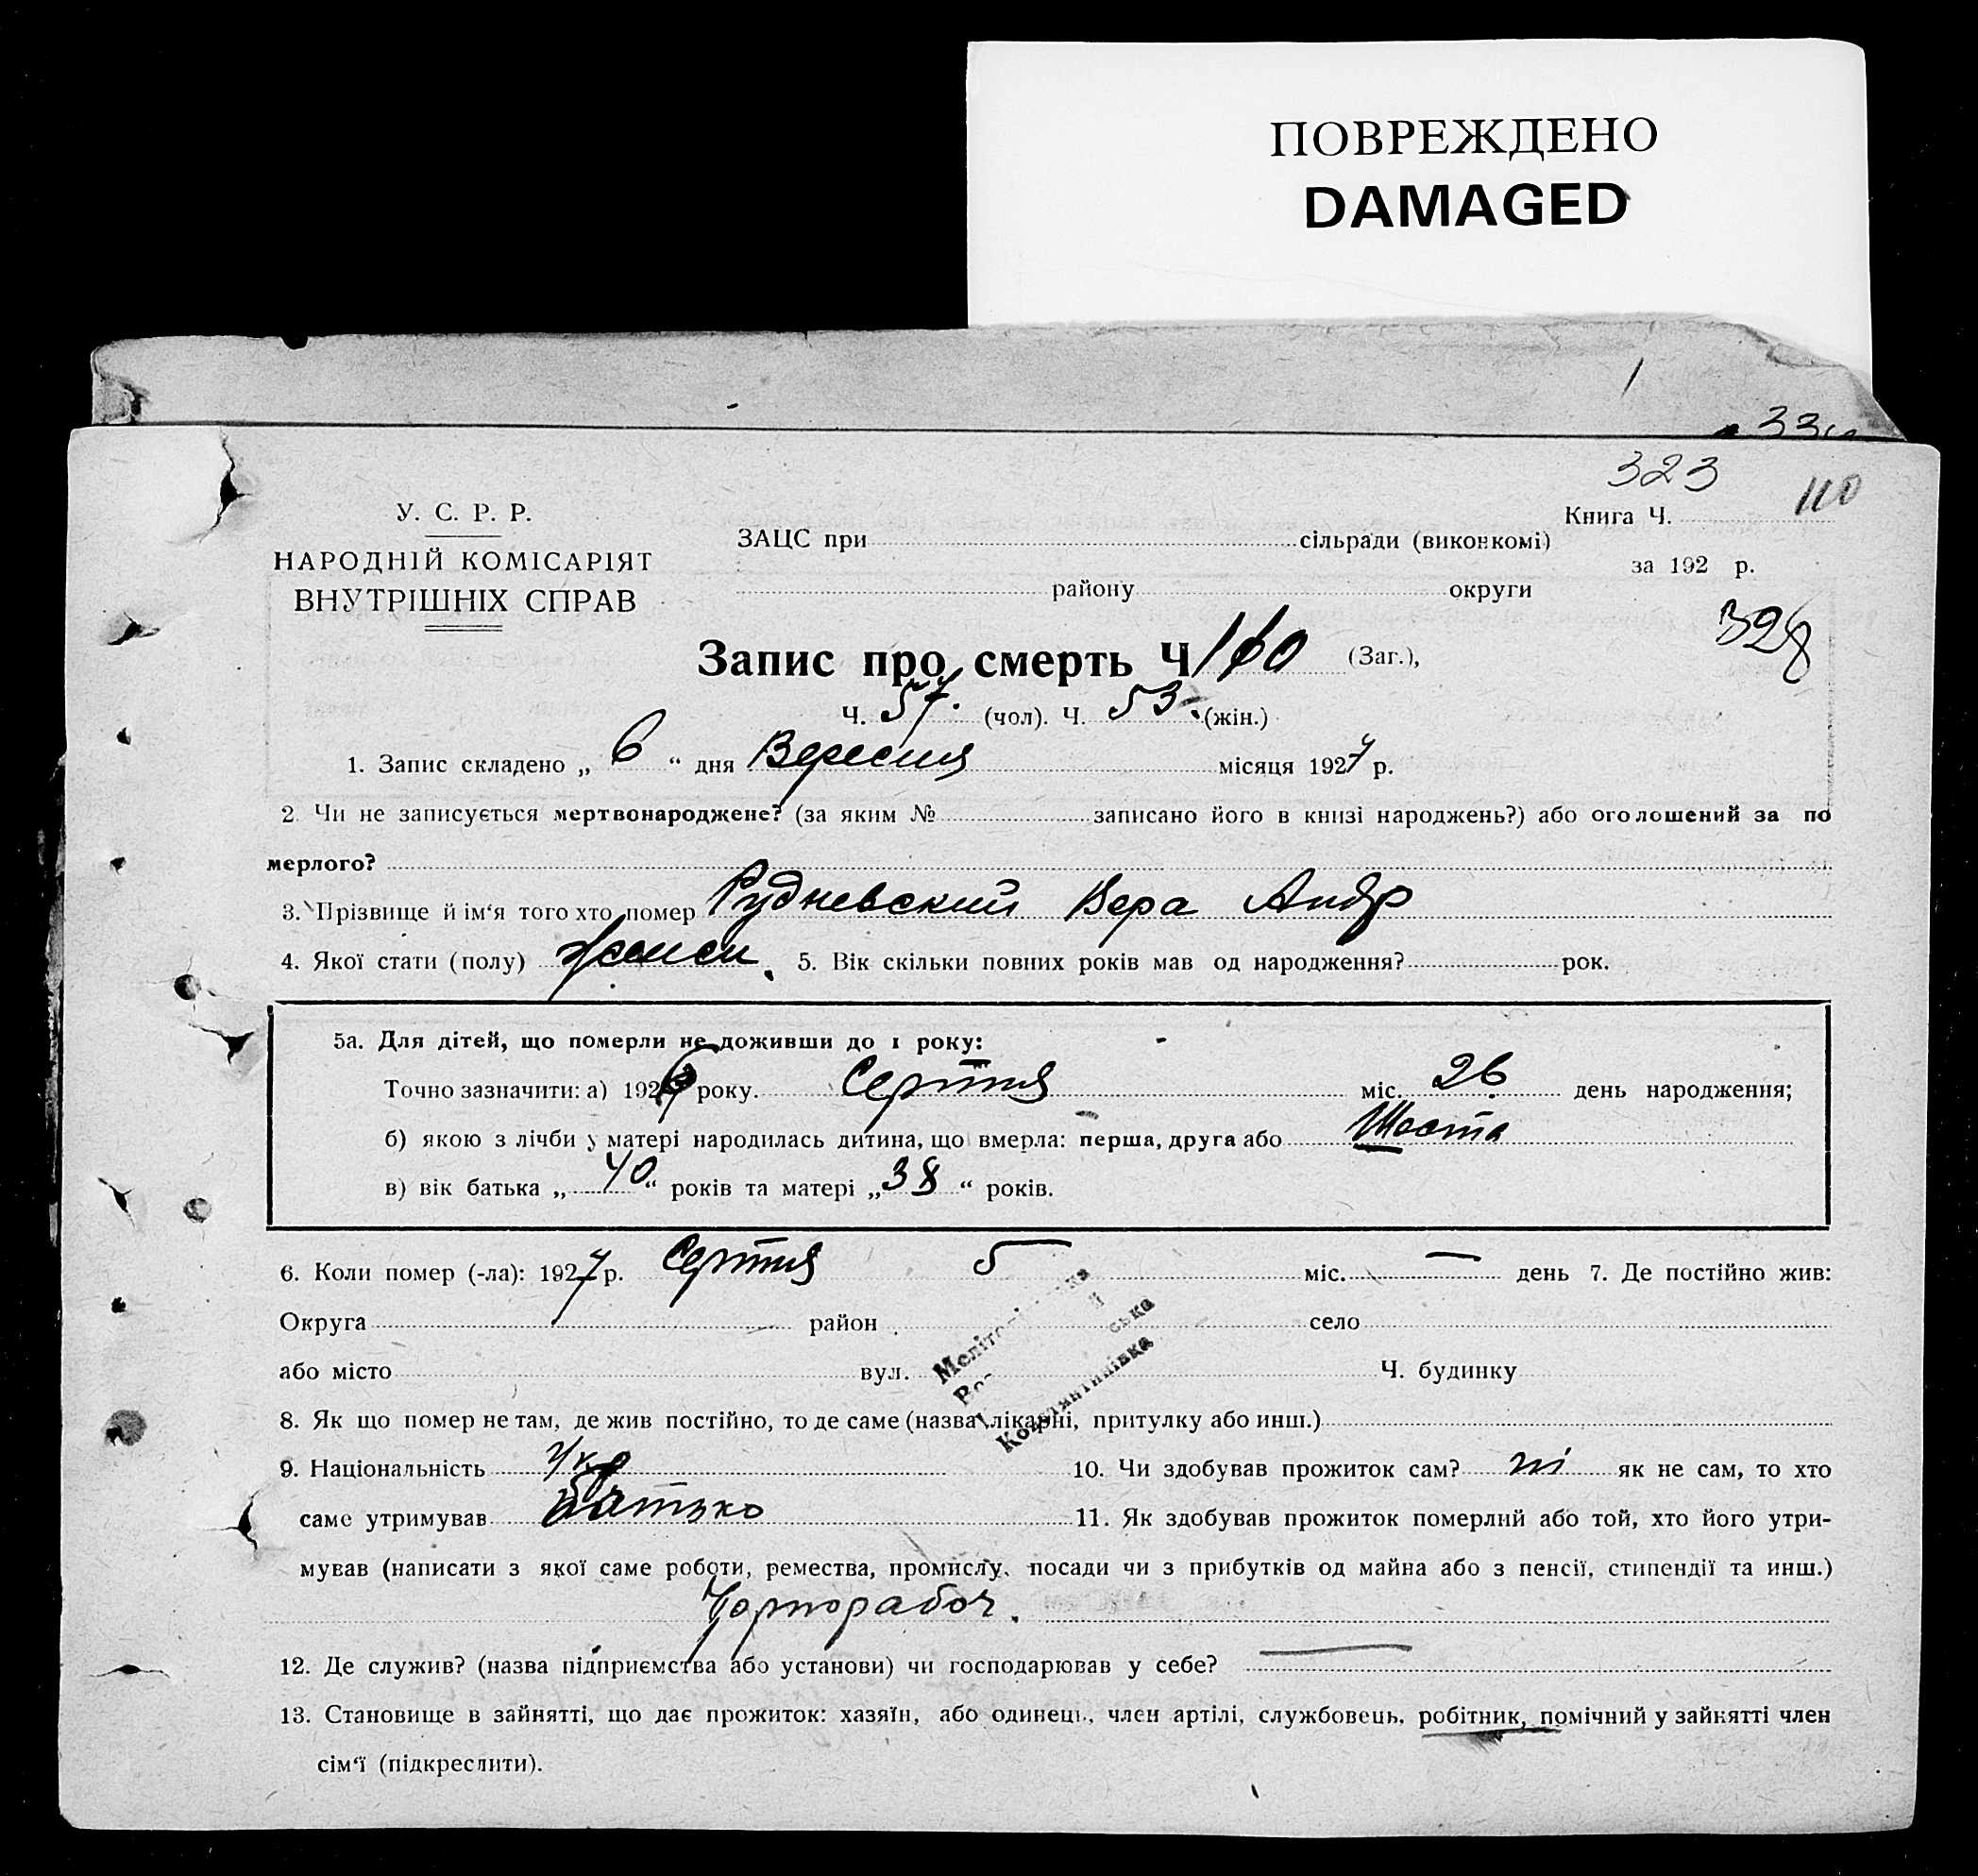 ПОВРЕЖДЕНО
DAMAGED
1
323
110
У. С. Р. Р.
НАРОДНІЙ КОМІСАРІЯТ
ВНУТРІШНІХ СПРАВ
ЗАЦС при сільради (виконкомі)
району округи
Книга Ч.
за 192 р.
328
Запис про смерть Ч 110 (Заг.),
Ч. 57. (чол). Ч. 53. (жін.)
1. Запис складено „ 6 “ дня Вересня місяця 1927 р.
2. Чи не записується мертвонароджене? (за яким № записано його в книзі народжень?) або оголошений за по
мерлого?
3. Прізвище й ім‘я того хто помер Рудневский Вера Андр
4. Якої стати (полу) 5. Вік скільки повних років мав од народження? рок.
5а. Для дітей, що померли не доживши до 1 року:
Точно зазначити: а) 192 року. Серпня міс. 26 день народження;
б) якою з лічби у матері народилась дитина, що вмерла: перша, друга або Шоста
в) вік батька „ 40 “ років та матері „ 38 “ років.
6. Коли помер (-ла): 1927 р. Серпня 5 міс. — день 7. Де постійно жив:
Округа район село
або місто вул. Ч. будинку
Костянтинівка
8. Як що помер не там, де жив постійно, то де саме (назва лікарні, притулку або инш.)
9. Національність Укр 10. Чи здобував прожиток сам? ні як не сам, то хто
саме утримував Батько 11. Як здобував прожиток померлий або той, хто його утри-
мував (написати з якої саме роботи, ремества, промислу, посади чи з прибутків од майна або з пенсії, стипендії та инш.)
Чорнорабоч.
12. Де служив? (назва підприємства або установи) чи господарював у себе? —
13. Становище в зайнятті, що дає прожиток: хазяїн, або одинець, член артілі, службовець, робітник, помічний у зайнятті член
сім‘ї (підкреслити).